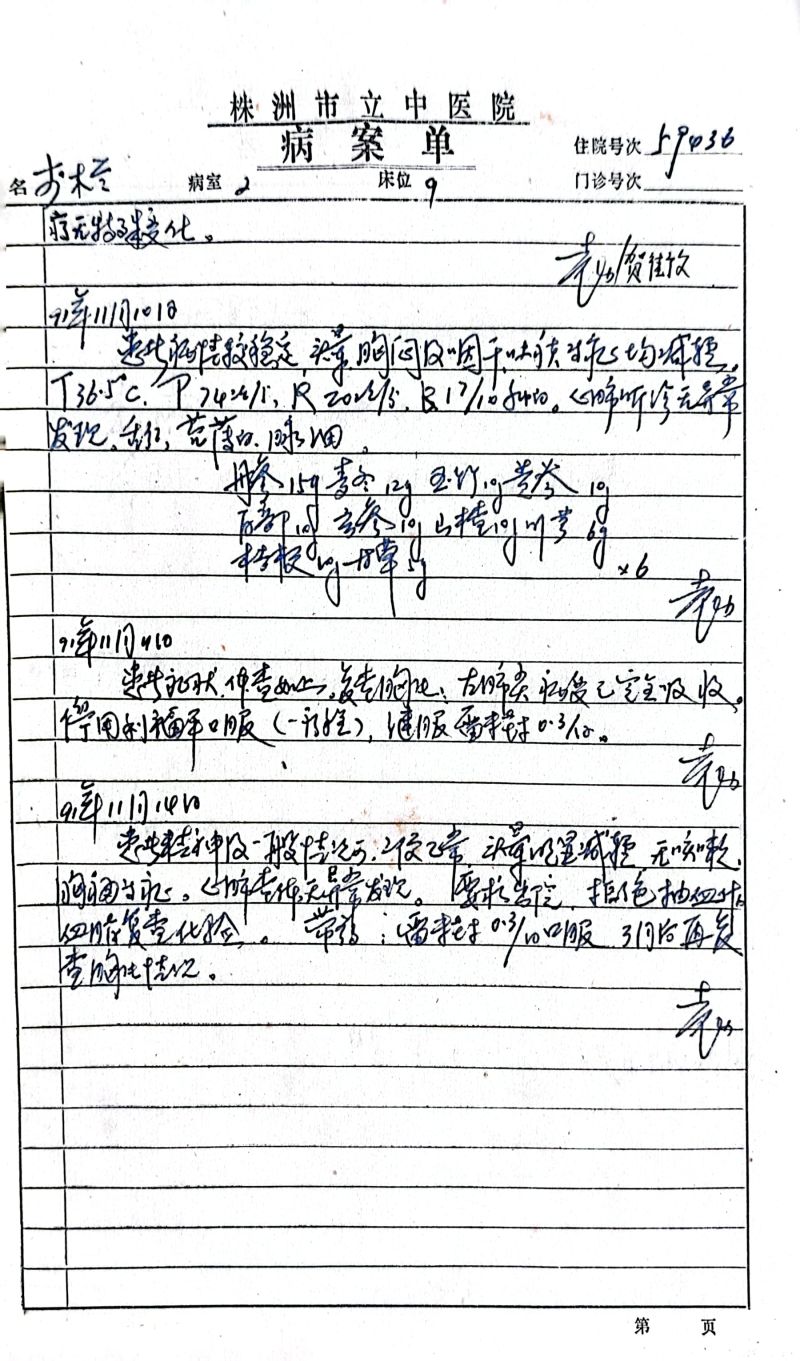 株洲市立中医院
病案单
住院号次 59436
名 病室 2 床位 9 门诊号次
疗无特殊变化。
贺佳
91年11月10日
患者病情较稳定,头晕胸闷及咽干咳痰等症均减轻。
T36.5℃. P 74次/分, R 20次/分. B.P 17/10 kpa。心肺听诊无异常
发现。舌红,苔薄白.脉细。
丹参15g 麦冬12g 玉竹10g 党参10g
百部10g 玄参10g 山楂10g 川芎6g
桔梗10g 甘草5g
×6
91年11月11日
患者症状.体查如上。复查胸片:左肺尖病变已完全吸收。
停用利福平口服(一顿),继服雷米封0.3/日。
91年11月14日
患者精神及一般情况可.二便正常.头晕明显减轻.无咳嗽.
胸痛等症。心肺查体无异常发现。要求出院.拒绝抽血作
血脂复查化验。带药:雷米封0.3/日口服 3月后再复
查胸片情况。
第 页